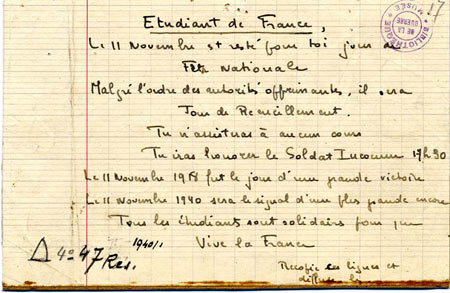 17
BIBLIOTHÈQUE DE LA GUERRE MUSÉE
Etudiant de France,
Le 11 Novembre est resté pour toi jour de
Fête Nationale
Malgré l'ordre des autorités opprimantes, il sera
Jour de Recueillement.
Tu n'assisteras à aucun cours
Tu iras honorer le Soldat Inconnu 17h30
Le 11 Novembre 1918 fut le jour d'une grande victoire
Le 11 Novembre 1940 sera le signal d'une plus grande encore
Tous les étudiants sont solidaires pour que
Vive la France
Recopie ces lignes et
diffuse les
Δ 4º 47 Rés. 1940/1